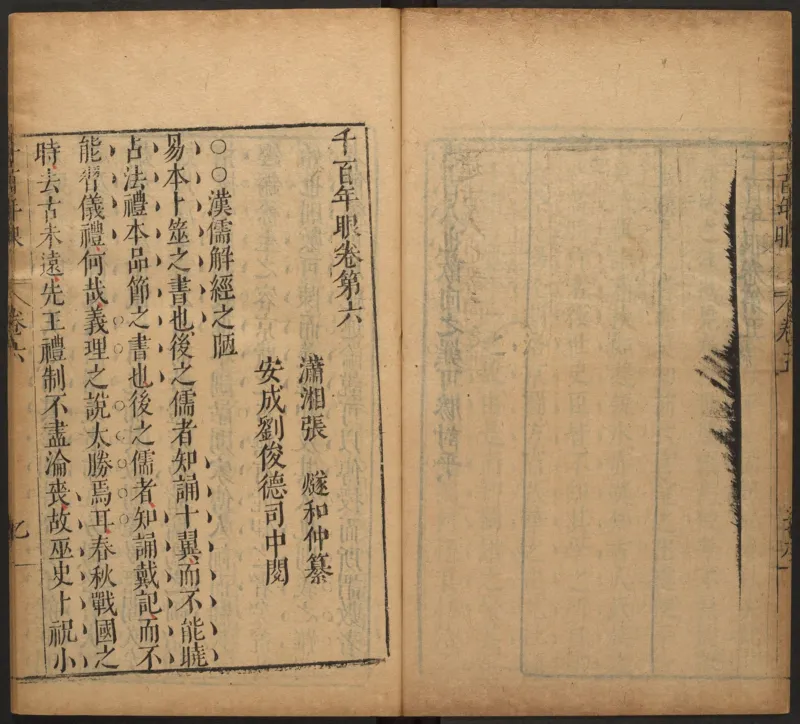 千百年眼卷第六
瀟湘張 燧和仲纂
安成劉俊德司中閱
○○漢儒解經之陋
易本卜筮之書也後之儒者知誦十翼而不能曉
占法禮本品節之書也後之儒者知誦戴記而不
能習儀禮何哉義理之說太勝焉耳春秋戰國之
時去古未遠先王禮制不盡淪喪故巫史卜祝小
千百年眼
卷六